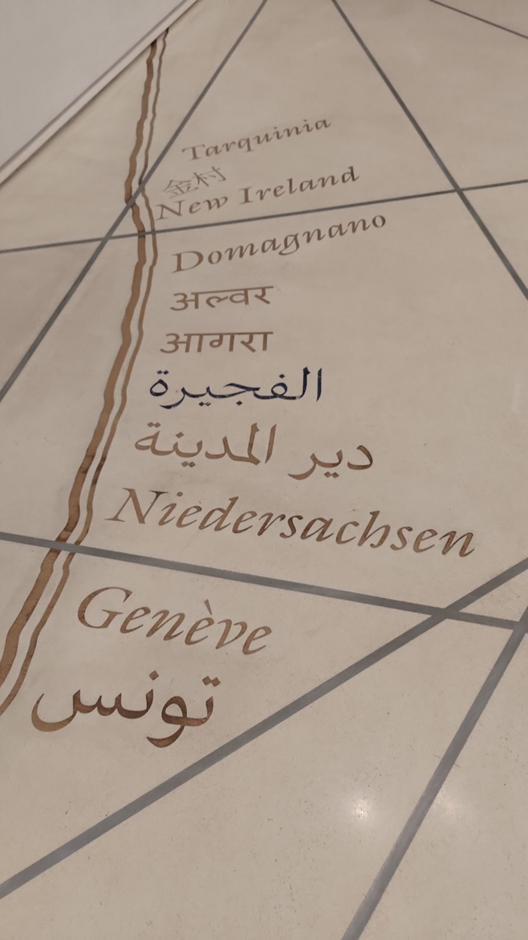 Tarquinia
金村
New Ireland
Domagnano
अल्वर
आगरा
الفجيرة
دير المدينة
Niedersachsen
Genève
تونس